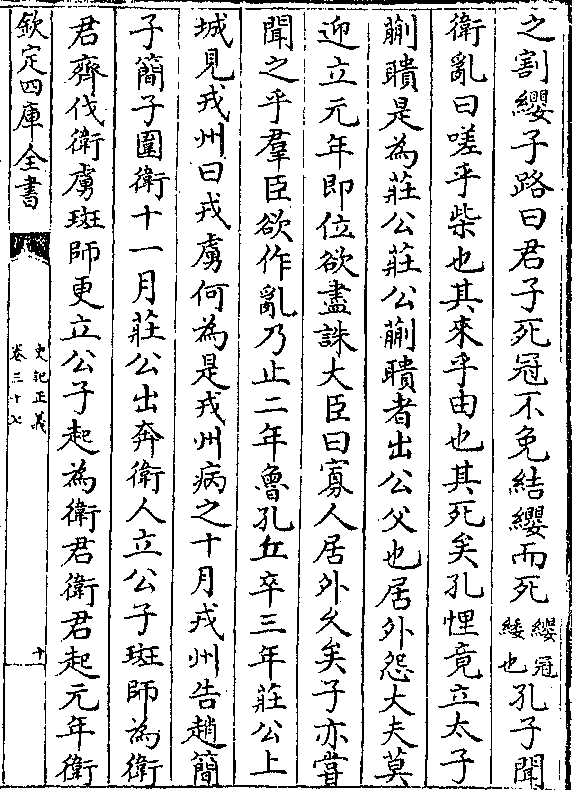 之割纓子路曰君子死冠不免結纓而死纓冠緌也孔子聞
衛亂曰嗟乎柴也其來乎由也其死矣孔悝竟立太子
蒯聵是為莊公莊公蒯聵者出公父也居外怨大夫莫
迎立元年即位欲盡誅大臣曰寡人居外久矣子亦嘗
聞之乎羣臣欲作亂乃止二年魯孔丘卒三年莊公上
城見戎州曰戎虜何為是戎州病之十月戎州告趙簡
子簡子圍衛十一月莊公出奔衛人立公子斑師為衛
君齊伐衛虜斑師更立公子起為衛君衛君起元年衛
欽定四庫全書
史記正義
卷三十七
十